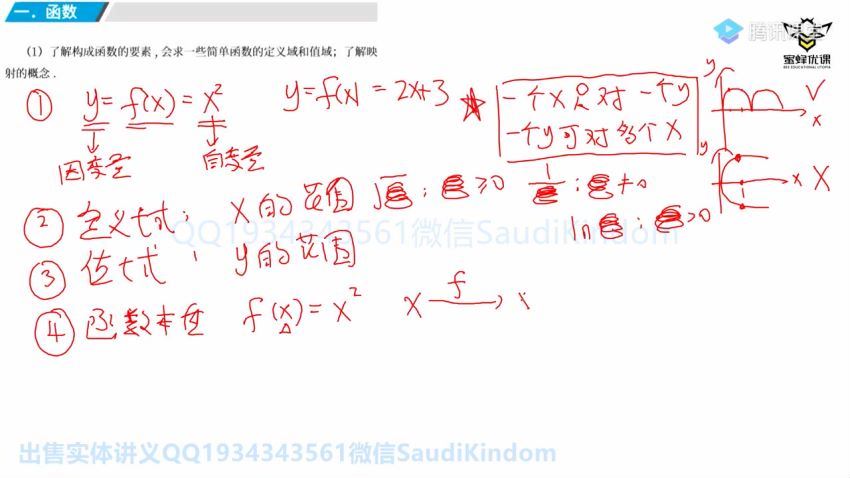 一. 函数
腾讯课堂
蜜蜂优课
BEE EDUCATIONAL UTOPIA
（1）了解构成函数的要素，会求一些简单函数的定义域和值域；了解映
射的概念．
① y = f(x) = x² y = f(x) = 2x+3 ★ 一个x只对一个y
一个y可对多个x
y x √
y x ×
因变量 自变量
② 定义域： x的范围 √ ； ≥0 1/ ； ≠0
ln ； >0
QQ1934343561微信SaudiKindom
③ 值域： y的范围
④ 函数本质 f(x) = x² x f → x
出售实体讲义QQ1934343561微信SaudiKindom